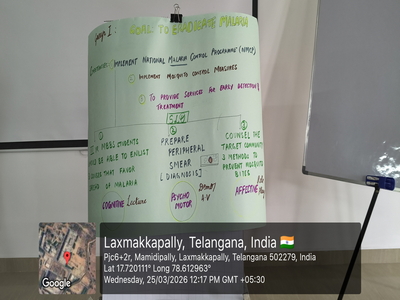 page 1: GOAL: TO ERADICATE MALARIA
IMPLEMENT NATIONAL MALARIA CONTROL PROGRAMME (NMCP)
① IMPLEMENT MOSQUITO CONTROL MEASURES
② TO PROVIDE SERVICES FOR EARLY DETECTION &
TREATMENT
SLO
①
MBBS STUDENTS
BE ABLE TO ENLIST
THAT FAVOR
OF MALARIA
COGNITIVE Lecture
②
PREPARE
PERIPHERAL
SMEAR
[DIAGNOSIS]
PSYCHO
MOTOR
③
COUNSEL THE
TARGET COMMUNITY
3 METHODS TO
PREVENT MOSQUITO
BITES
AFFECTIVE
Google
Laxmakkapally, Telangana, India 🇮🇳
Pjc6+2r, Mamidipally, Laxmakkapally, Telangana 502279, India
Lat 17.720111° Long 78.612963°
Wednesday, 25/03/2026 12:17 PM GMT +05:30